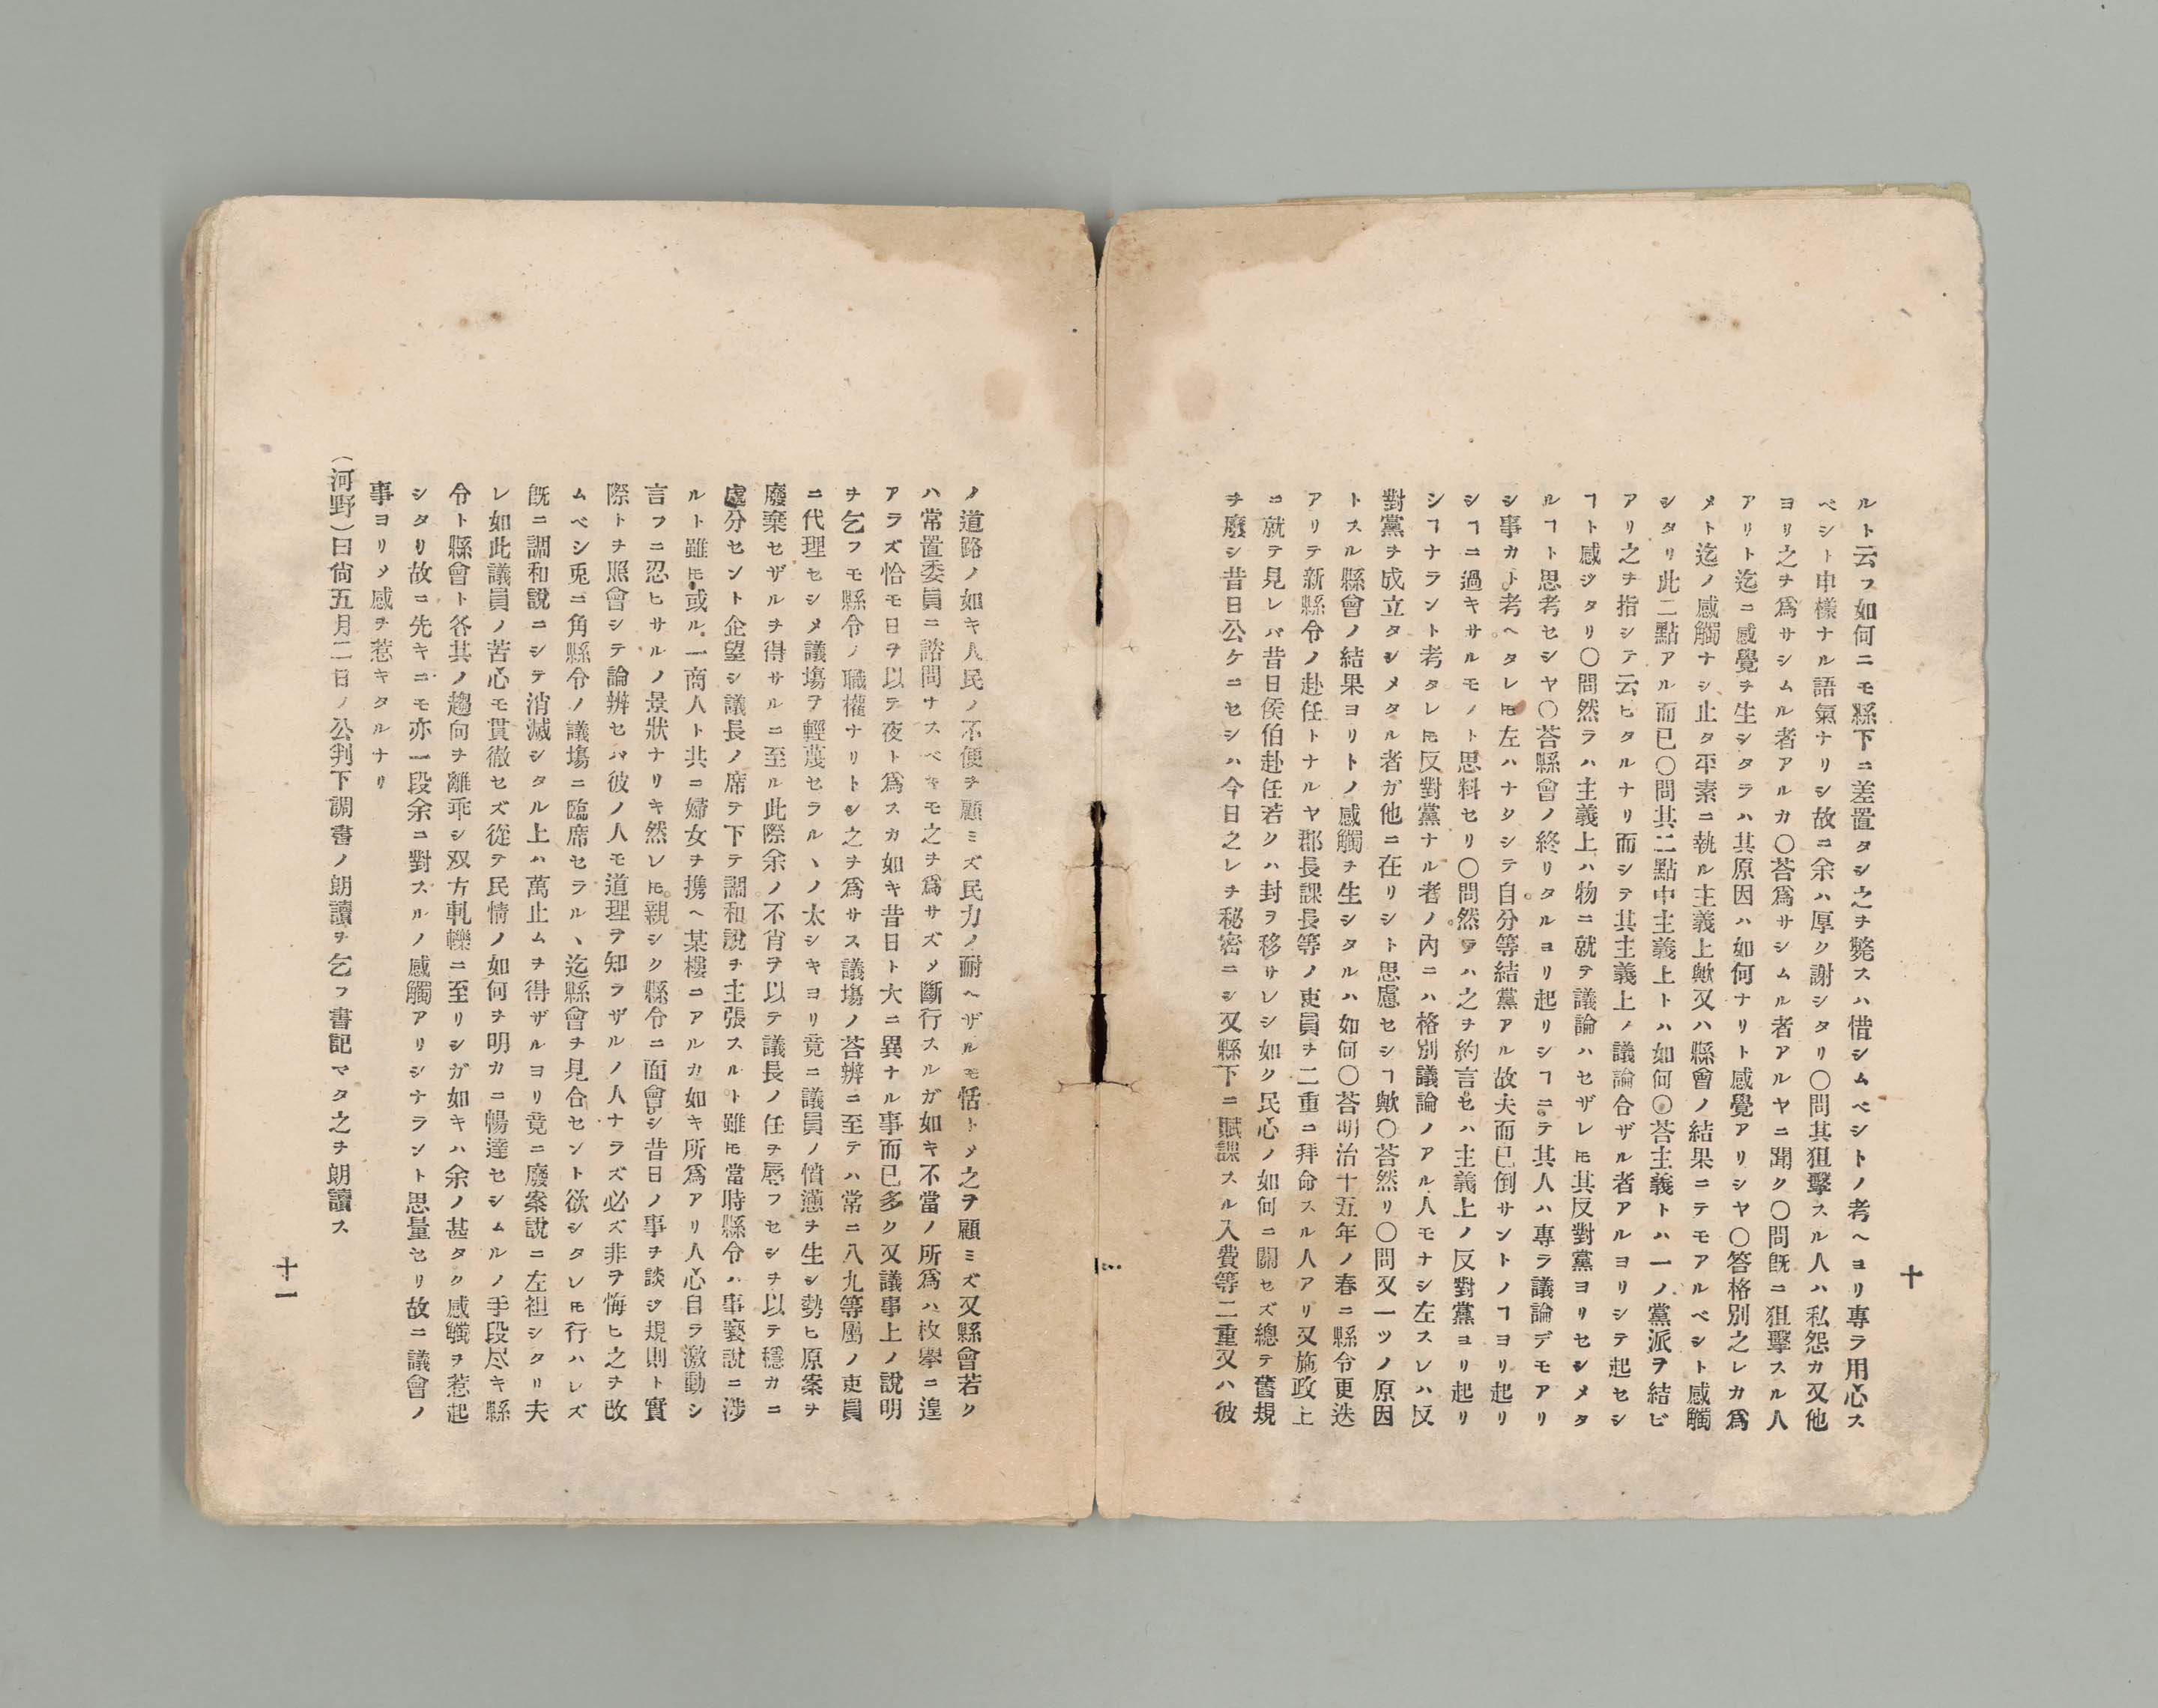 ルト云フ如何ニモ縣下ニ差置タシ之ヲ斃スハ惜シムベシトノ考ヘヨリ專ラ用心ス
ベシト申樣ナル語氣ナリシ故ニ余ハ厚ク謝シタリ○問其狙擊スル人ハ私怨カ又他
ヨリ之ヲ爲サシムル者アルカ○荅爲サシムル者アルヤニ聞ク○問既ニ狙擊スル人
アリト迄ニ感覺ヲ生シタラハ其原因ハ如何ナリト感覺アリシヤ○答格別之レカ爲
メト迄ノ感觸ナシ止タ平素ニ執ル主義上歟又ハ縣會ノ結果ニテモアルベシト感觸
シタリ此二點アル而已○問其二點中主義上トハ如何○荅主義トハ一ノ黨派ヲ結ビ
アリ之ヲ指シテ云ヒタルナリ而シテ其主義上ノ議論合ザル者アルヨリシテ起セシ
ヿト感ジタリ○問然ラハ主義上ハ物ニ就テ議論ハセザレ𪜈其反對黨ヨリセシメタ
ルヿト思考セシヤ○荅縣會ノ終リタルヨリ起リシヿニテ其人ハ專ラ議論デモアリ
シ事カト考ヘタレ𪜈左ハナクシテ自分等結黨アル故夫而已倒サントノヿヨリ起リ
シヿニ過キサルモノト思料セリ○問然ラハ之ヲ約言セハ主義上ノ反對黨ヨリ起リ
シヿナラント考タレ𪜈反對黨ナル者ノ內ニハ格別議論ノアル人モナシ左スレハ反
對黨ヲ成立タシメタル者ガ他ニ在リシト思慮セシヿ歟○荅然リ○問又一ツノ原因
トスル縣會ノ結果ヨリトノ感觸ヲ生シタルハ如何○荅明治十五年ノ春ニ縣令更迭
アリテ新縣令ノ赴任トナルヤ郡長課長等ノ吏員ヲ二重ニ拜命スル人アリ又施政上
ニ就テ見レバ昔日侯伯赴任若クハ封ヲ移サレシ如ク民心ノ如何ニ關セズ總テ舊規
ヲ廢シ昔日公ケニセシハ今日之レヲ秘密ニシ又縣下ニ賦課スル入費等二重又ハ彼
十
ノ道路ノ如キ人民ノ不便ヲ顧ミズ民力ノ耐ヘザルモ恬トメ之ヲ顧ミズ又縣會若ク
ハ常置委員ニ諮問ナスベキモ之ヲ爲サズメ斷行スルガ如キ不當ノ所爲ハ枚擧ニ遑
アラズ恰モ日ヲ以テ夜ト爲スカ如キ昔日ト大ニ異ナル事而已多ク又議事上ノ說明
ヲ乞フモ縣令ノ職權ナリトシ之ヲ爲サス議塲ノ荅辨ニ至テハ常ニ八九等屬ノ吏員
ニ代理セシメ議塲ヲ輕蔑セラルヽノ太シキヨリ竟ニ議員ノ憤懣ヲ生シ勢ヒ原案ヲ
廢棄セザルヲ得サルニ至ル此際余ノ不肖ヲ以テ議長ノ任ヲ辱フセシヲ以テ穩カニ
處分セント企望シ議長ノ席ヲ下テ調和說ヲ主張スルト雖𪜈當時縣令ハ事褻說ニ涉
ルト雖𪜈或ル一商人ト共ニ婦女ヲ携ヘ某樓ニアルカ如キ所爲アリ人心自ラ激動シ
言フニ忍ヒサルノ景狀ナリキ然レ𪜈親シク縣令ニ面會シ昔日ノ事ヲ談ジ規則ト實
際トヲ照會シテ論辨セバ彼ノ人モ道理ヲ知ラザルノ人ナラズ必ズ非ヲ悔ヒ之ヲ改
ムベシ兎ニ角縣令ノ議塲ニ臨席セラルヽ迄縣會ヲ見合セント欲シタレ𪜈行ハレズ
既ニ調和說ニシテ消滅シタル上ハ萬止ムヲ得ザルヨリ竟ニ廢案說ニ左袒シタリ夫
レ如此議員ノ苦心モ貫徹セズ從テ民情ノ如何ヲ明カニ暢達セシムルノ手段尽キ縣
令ト縣會ト各其ノ趨向ヲ離乖シ双方軋轢ニ至リシガ如キハ余ノ甚タク感觸ヲ惹起
シタリ故ニ先キニモ亦一段余ニ對スルノ感觸アリシナラント思量セリ故ニ議會ノ
事ヨリメ感ヲ惹キタルナリ
（河野）曰尙五月二日ノ公判下調書ノ朗讀ヲ乞フ書記マタ之ヲ朗讀ス
十一